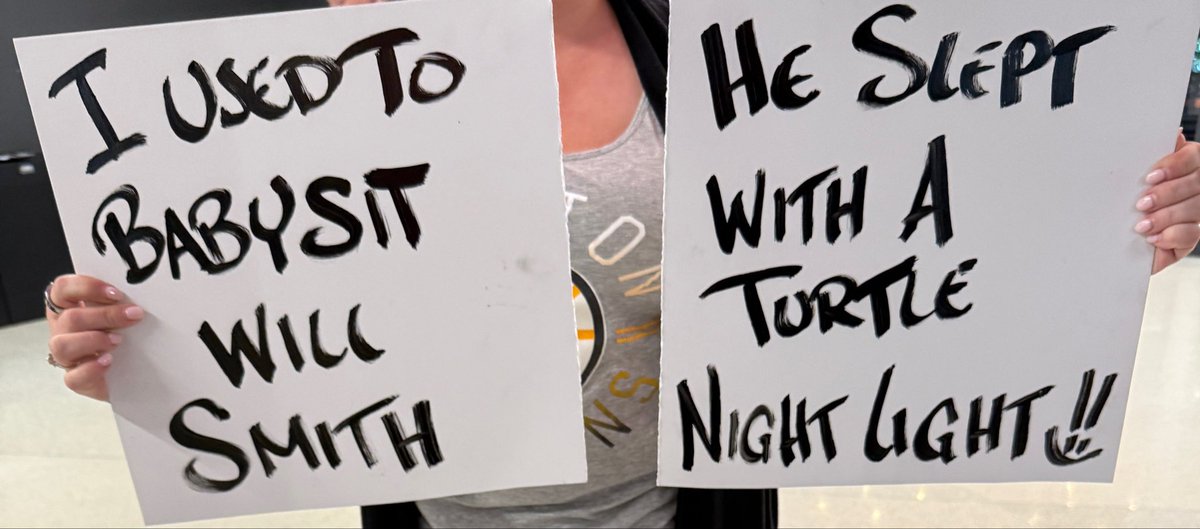 I USED TO
BABYSIT
WILL
SMITH
HE SLEPT
WITH A
TURTLE
NIGHT LIGHT!!